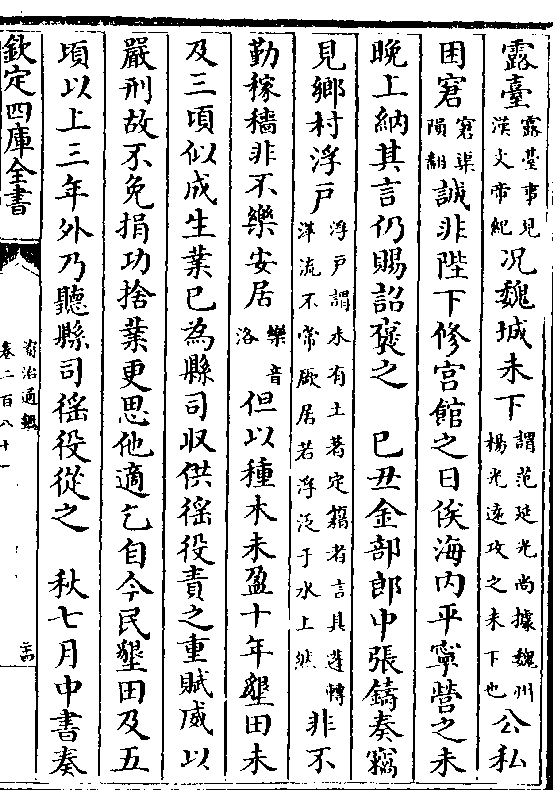 露臺露臺事見漢文帝紀况魏城未下謂范延光尚據魏州楊光遠攻之未下也公私
困窘窘渠隕翻誠非陛下修宫館之日俟海内平寧營之未
晚上納其言仍賜詔褒之 己丑金部郎中張鑄奏竊
見鄉村浮戸浮戸謂未有土著定籍者言其蓬轉萍流不常厥居若浮泛于水上然非不
勤稼穡非不樂安居樂音洛但以種木未盈十年墾田未
及三頃似成生業已為縣司収供徭役責之重賦威以
嚴刑故不免捐功捨業更思他適乞自今民墾田及五
頃以上三年外乃聽縣司徭役從之 秋七月中書奏
欽定四庫全書
資治通鑑
卷二百八十一